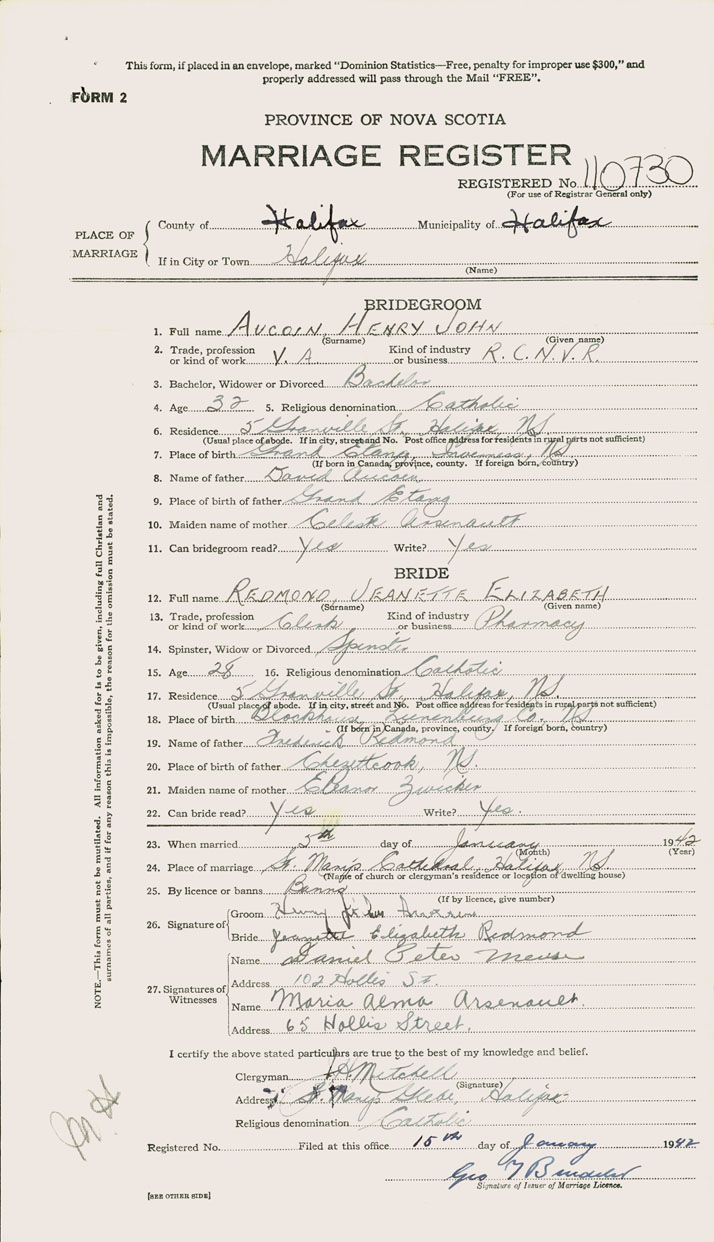 This form, if placed in an envelope, marked "Dominion Statistics—Free, penalty for improper use $300," and
properly addressed will pass through the Mail "FREE".
FORM 2
PROVINCE OF NOVA SCOTIA
MARRIAGE REGISTER
REGISTERED No. 110730
(For use of Registrar General only)
PLACE OF MARRIAGE
County of Halifax Municipality of Halifax
If in City or Town Halifax
(Name)
BRIDEGROOM
1. Full name AUCOIN, HENRY JOHN
(Surname) (Given name)
2. Trade, profession or kind of work V. A Kind of industry or business R. C. N. V. R.
3. Bachelor, Widower or Divorced Bachelor
4. Age 32 5. Religious denomination Catholic
6. Residence 5 Granville St, Halifax, NS
(Usual place of abode. If in city, street and No. Post office address for residents in rural parts not sufficient)
7. Place of birth Grand Etang, Inverness, NS
(If born in Canada, province, county. If foreign born, country)
8. Name of father David Aucoin
9. Place of birth of father Grand Etang
10. Maiden name of mother Celeste Arsenault
11. Can bridegroom read? Yes Write? Yes
BRIDE
12. Full name REDMOND, JEANETTE ELIZABETH
(Surname) (Given name)
13. Trade, profession or kind of work Clerk Kind of industry or business Pharmacy
14. Spinster, Widow or Divorced Spinster
15. Age 28 16. Religious denomination Catholic
17. Residence 5 Granville St, Halifax, NS.
(Usual place of abode. If in city, street and No. Post office address for residents in rural parts not sufficient)
18. Place of birth Blockhouse, Lunenburg Co. NS
(If born in Canada, province, county. If foreign born, country)
19. Name of father Frederick Redmond
20. Place of birth of father Chezetcook, NS.
21. Maiden name of mother Eleanor Zwicker
22. Can bride read? Yes Write? Yes.
23. When married 5th day of January 1942
(Month) (Year)
24. Place of marriage St. Mary's Cathedral, Halifax NS
(Name of church or clergyman's residence or location of dwelling house)
25. By licence or banns Banns
(If by licence, give number)
26. Signature of
Groom Henry
Bride Jeanette Elizabeth Redmond
27. Signatures of Witnesses
Name Daniel Peter Meuse
Address 102 Hollis St.
Name Maria Alma Arsenault.
Address 65 Hollis Street.
I certify the above stated particulars are true to the best of my knowledge and belief.
Clergyman Mitchell
(Signature)
Address St. Mary's Glebe, Halifax
Religious denomination Catholic
Registered No. Filed at this office 15th day of January 1942
Geo
Signature of Issuer of Marriage Licence.
[SEE OTHER SIDE]
NOTE.—This form must not be mutilated. All information asked for is to be given, including full Christian and
surnames of all parties, and if for any reason this is impossible, the reason for the omission must be stated.